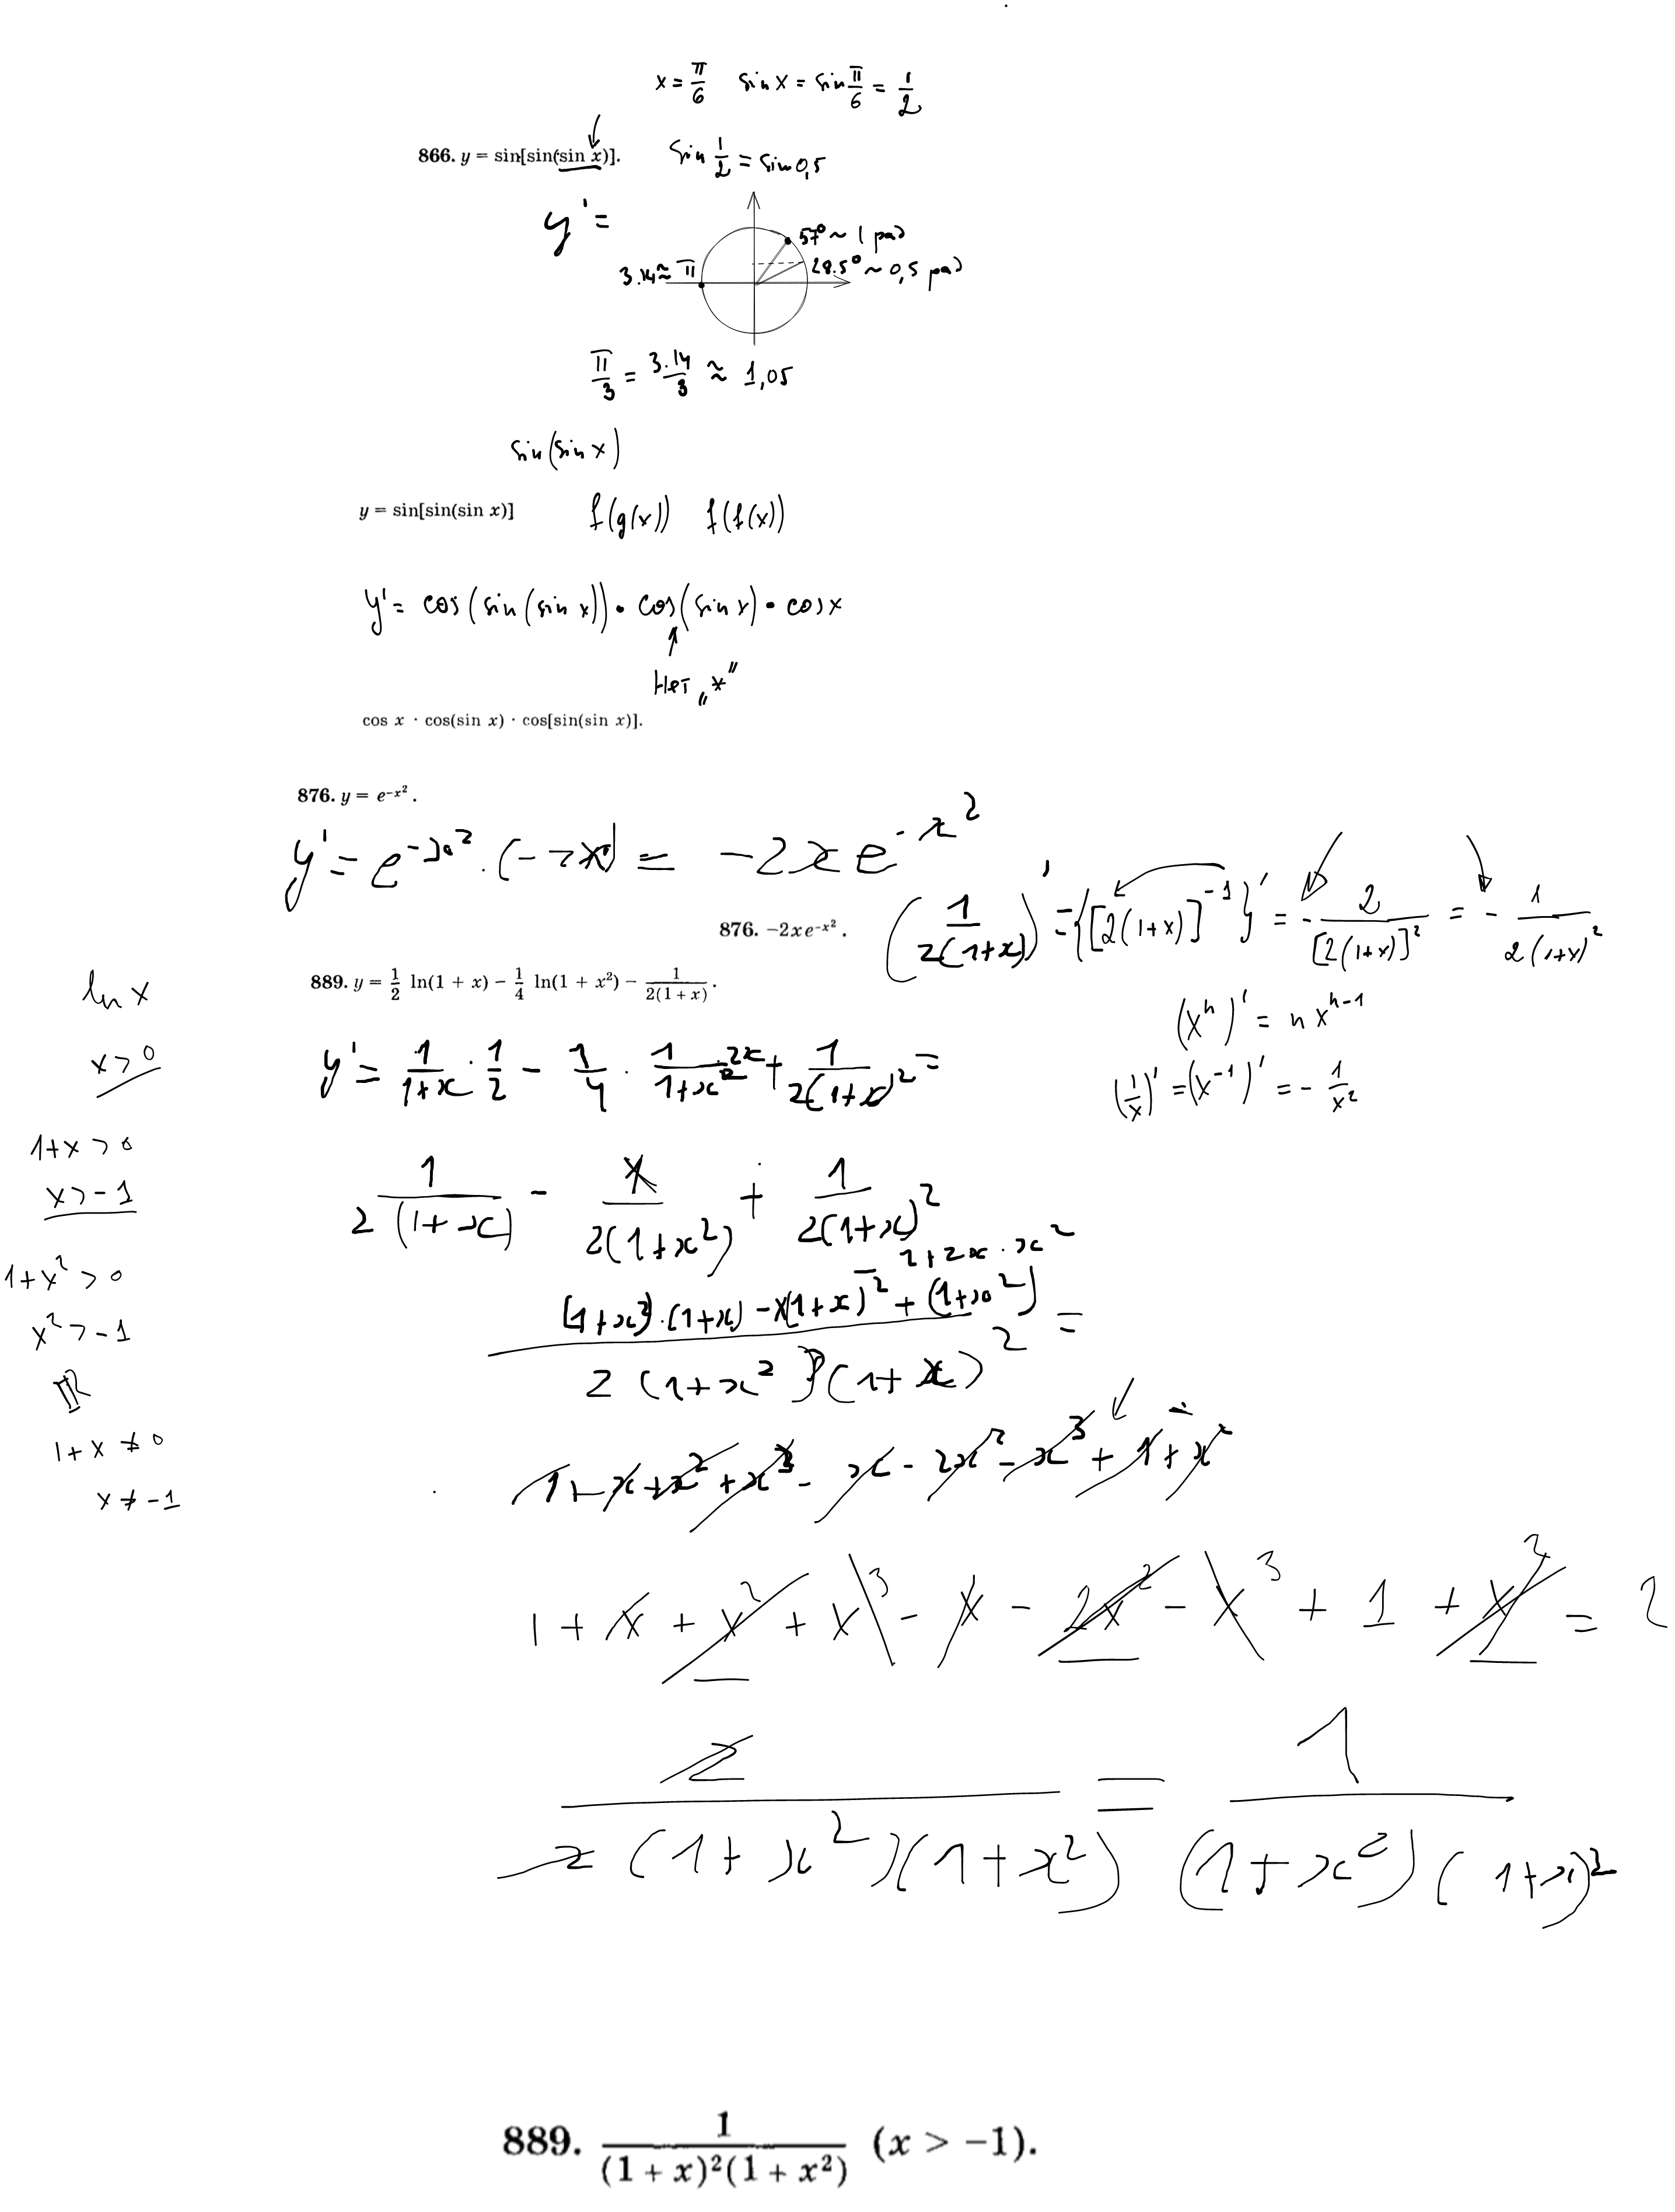 x = π/6   sin x = sin π/6 = 1/2
866. y = sin[sin(sin x)].
sin 1/2 = sin 0,5
y' =
57° ~ 1 рад
28.5° ~ 0,5 рад
3.14 ≈ π
π/3 = 3.14/3 ≈ 1,05
sin(sin x)
y = sin[sin(sin x)]
f(g(x))   f(f(x))
y' = cos(sin(sin x)) • cos(sin x) • cos x
↑
Нет „x"
cos x · cos(sin x) · cos[sin(sin x)].
876. y = e^{-x²}.
y' = e^{-x²} · (-2x) = -2x e^{-x²}
(1/(2(1+x)))' = {[2(1+x)]^{-1}}' = - 2/[2(1+x)]² = - 1/(2(1+x)²)
876. -2xe^{-x²}.
889. y = 1/2 ln(1 + x) - 1/4 ln(1 + x²) - 1/(2(1 + x)).
(xⁿ)' = n x^{n-1}
(1/x)' = (x^{-1})' = - 1/x²
ln x
x > 0
1+x > 0
x > -1
1+x² > 0
x² > -1
ℝ
1+x ≠ 0
x ≠ -1
y' = 1/(1+x) · 1/2 - 1/4 · 1/(1+x²) · 2x + 1/(2(1+x)²) =
1/(2(1+x)) - x/(2(1+x²)) + 1/(2(1+x)²)
1+2x · x²
((1+x²)·(1+x) - x(1+x)² + (1+x²))/(2(1+x²)(1+x)²) =
1+x+x²+x³ - x - 2x² - x³ + 1+x²
1 + x + x² + x³ - x - 2x² - x³ + 1 + x² = 2
2/(2(1+x²)(1+x²)) = 1/((1+x²)(1+x)²)
889. 1/((1 + x)²(1 + x²)) (x > -1).